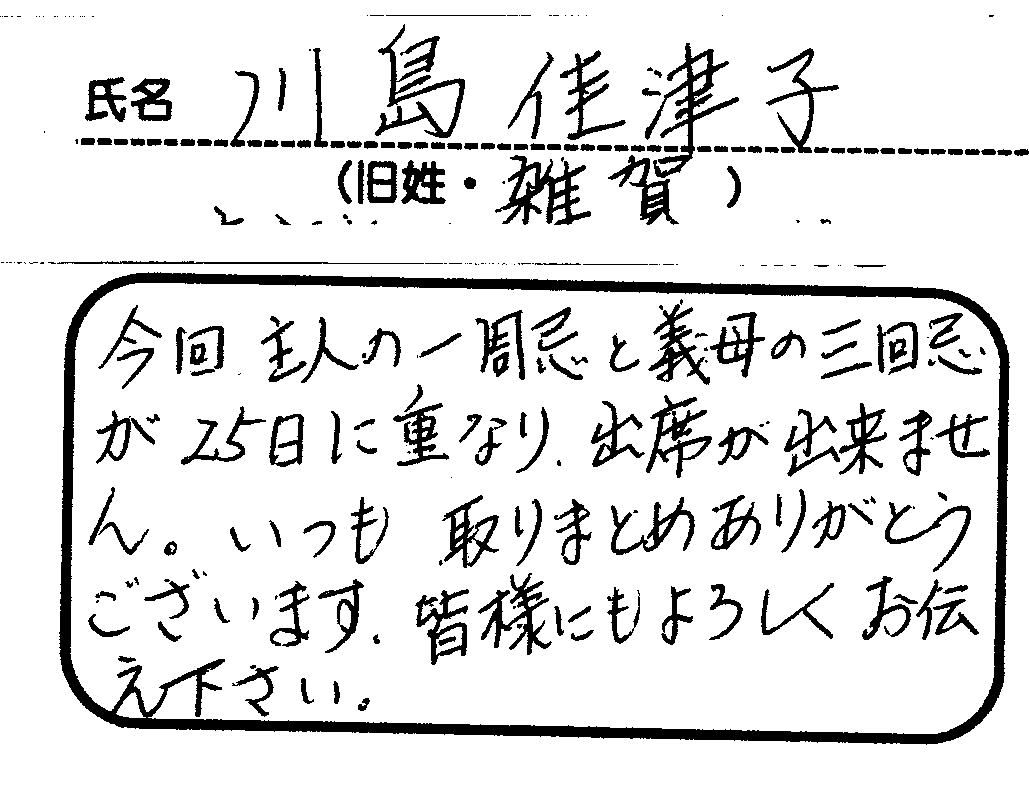 氏名 川島 佳津子
(旧姓・雑賀)
今回 主人の一周忌と義母の三回忌
が25日に重なり、出席が出来ませ
ん。いつも 取りまとめありがとう
ございます、皆様にもよろしくお伝
え下さい。